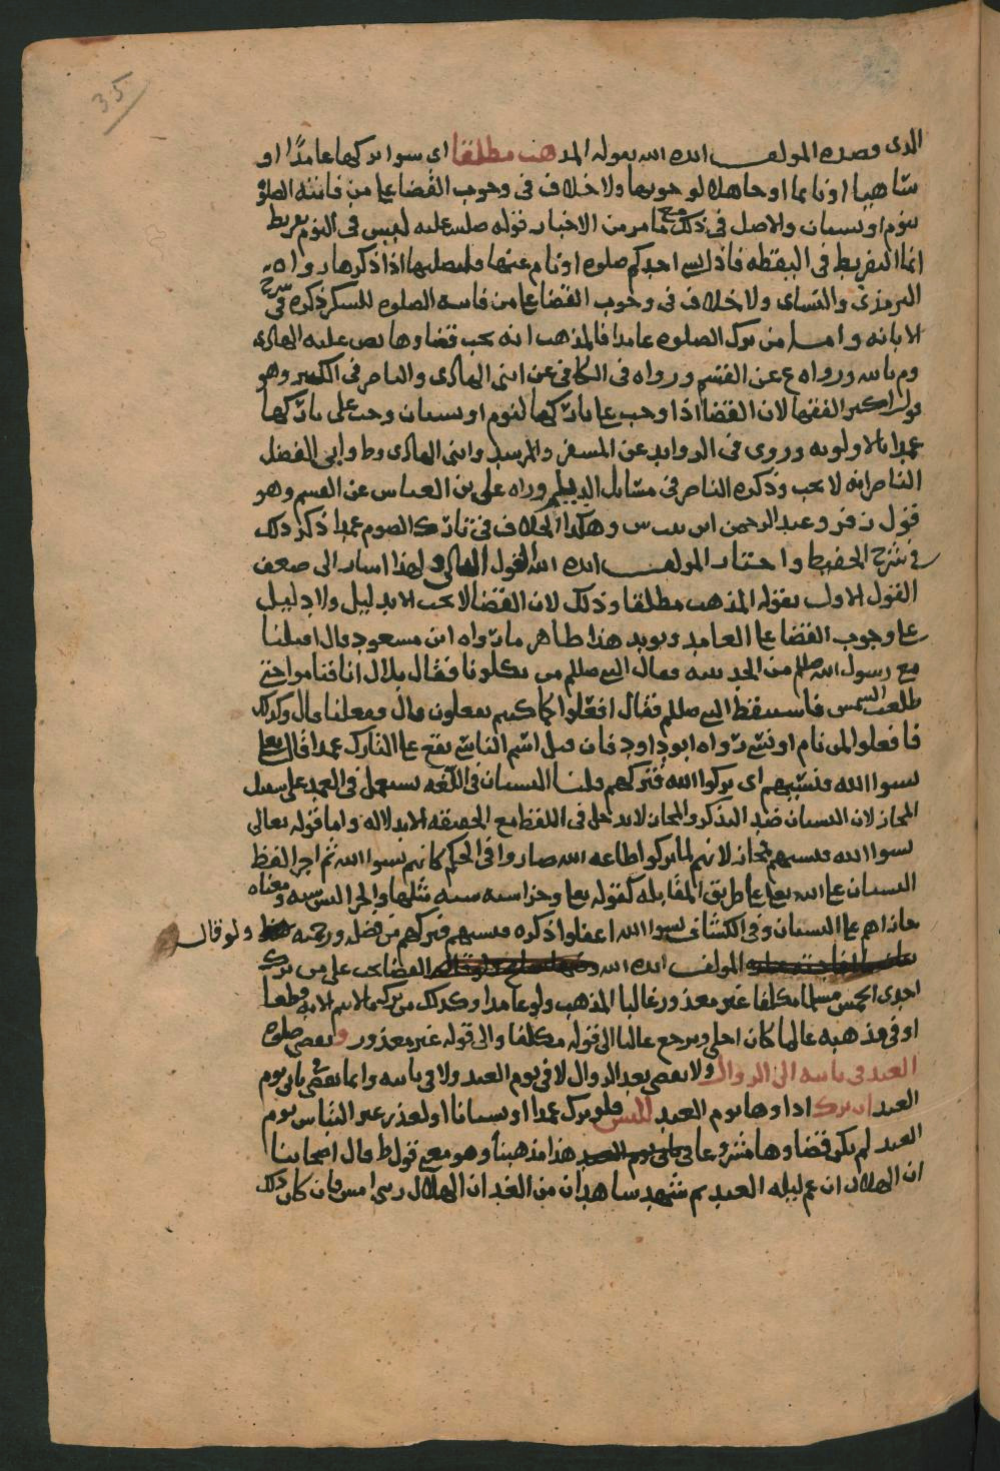 35
الذى قصده المولف ايده الله بقوله المذهب مطلقا اى سوا تركها عامدًا او
ساهيا او نايما او جاهلا لوجوبها ولا خلاف فى وجوب القضا على من فاتته الصلوة
بنوم او نسيان والاصل فى ذلك مع ما مر من الاخبار قوله صلعم ليس فى النوم تفريط
انما التفريط فى اليقظه فاذا نسى احدكم صلوه او نام عنها فليصليها اذا ذكرها رواه
الترمذى والنساى ولا خلاف فى وجوب القضا على من فاتته الصلوه للسكر ذكره فى شرح
الابانه واما من ترك الصلوه عامدا فالمذهب انه يجب قضاوها نص عليه الهادى
وم بالله ورواه ع عن القسم ورواه فى الكافى عن ابنى الهادى والناصر فى الكبير وهو
قول اكثر الفقها لان القضا اذا وجب على تاركها لنوم او نسيان وجب على تاركها
عمدا بالاولويه وروى فى الزوايد عن المسفر والمرشد وابنى الهادى وط وابى الفضل
الناصر انه لا يجب وذكره الناصر فى مسايل الديلم ورواه على بن العباس عن القسم وهو
قول زفر وعبد الرحمن ابن بنت س وهكذا الخلاف فى تارك الصوم عمدا ذكر ذلك
فى شرح الحفيظ واختار المولف ايده الله القول الهادى ولهذا اشار الى ضعف
القول الاول بقوله المذهب مطلقا وذلك لان القضا لا يجب الا بدليل ولا دليل
على وجوب القضا على العامد ويويد هذا ظاهر ما رواه ابن مسعود قال اقبلنا
مع رسول الله صللم من الحديبيه فقال النبى صللم من يكلونا فقال بلال انا فناموا حتى
طلعت الشمس فاستيقظ النبى صللم فقال افعلوا كما كنتم تفعلون قال ففعلنا قال وكذلك
فافعلوا لمن نام او نسى رواه ابو داود فان قيل اسم الناسى يقع على التارك عمدا قال تعالى
نسوا الله فنسيهم اى تركوا الله فتركهم قلنا النسيان فى اللغه يستعمل فى العمد على سبيل
المجاز لان النسيان ضد التذكر والمجاز لا يدخل فى اللفظ مع الحقيقه الا بدلاله واما قوله تعالى
نسوا الله فنسيهم مجاز لانهم لما تركوا طاعه الله صاروا فى الحكم كانهم نسوا الله ثم اجرا لفظ
النسيان على الله تعالى على طريق المقابله كقوله تعالى وجزا سيئه سيئه مثلها والجزا ليس سيئه ومعناه
جازاهم على النسيان وفى الكشاف نسوا الله اغفلوا ذكره فنسيهم فتركهم من فضله ورحمته ولو قال
المولف ايده الله القضا يجب على من ترك
احدى الخمس مسلما مكلفا غير معذور غالبا المذهب ولو عامدا وكذلك من ترك ما لا يتم الا به قطعا
او فى مذهبه عالما كان اجلى ويرجع غالبا الى قوله مكلفا والى قوله غير معذور ويقضى صلوة
العيد فى ثانيه الى الزوال ولا يقضى بعد الزوال لا فى يوم العيد ولا فى ثانيه وانما يقضى ثانى يوم
العيد ان ترك اداوها يوم العيد للبس فلو ترك عمدا او نسيانا او لعذر غير التباس يوم
العيد لم يكن قضاوها مشروعا هذا مذهبنا وهو معنى قول ط قال اصحابنا
ان الهلال ان غم ليله العيد ثم شهد شاهدان من الغد ان الهلال رىء امس فان كان ذلك